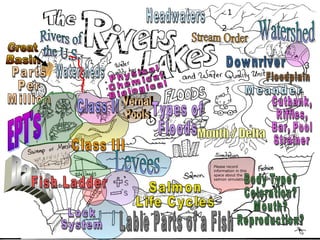 The
Rivers
Lakes
and Water Quality Unit
Headwaters
<1
Stream Order
Watershed
Rivers of
the U.S.
Great
Basin
Parts
Per
Million
Watersheds
Physical
Chemical
Biological
Downriver
Floodplain
Meander
Cutbank,
Riffles,
Bar, Pool
Strainer
FLOODS
Class V
Vernal
Pools
Types of
Floods
EPT's
Mouth / Delta
Class III
Levees
Please record
information in this
space about the
salmon simulation
Fish Ladder
Salmon
Life Cycles
Salmon
Body Type?
Coloration?
Mouth?
Reproduction?
Lock
System
Lable Parts of a Fish